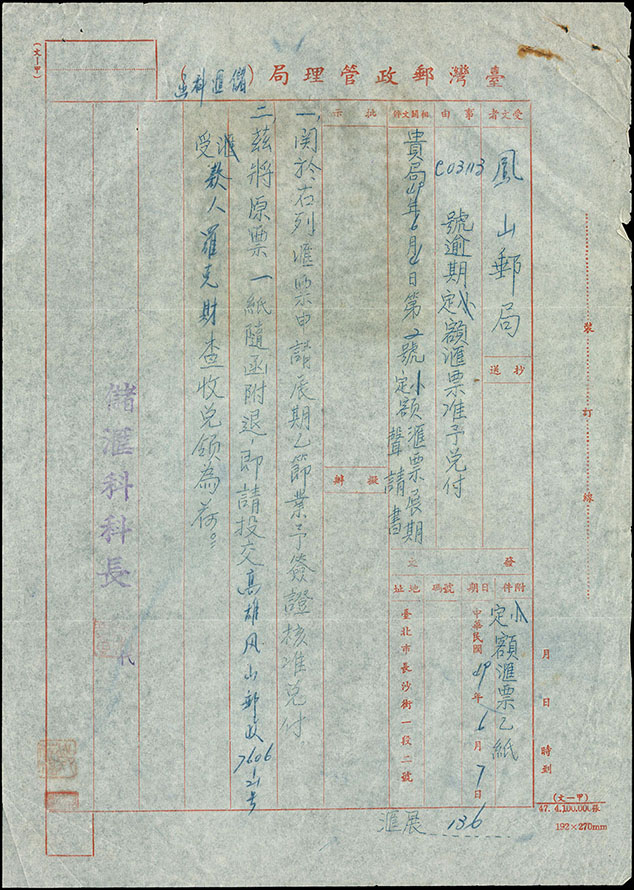 臺灣郵政管理局(儲匯科函)
(文一甲)
受文者
鳳山郵局
抄送
事由
C03113
號逾期定小額滙票准予兌付
相關文件
貴局49年6月4日第2號定小額滙票展期
聲請書
批示
擬辦
一、関於右列滙票申請展期乙節業予簽證核准兌付
二、茲將原票一紙隨函附退即請投交高雄凤山郵政7606/21号
受滙
款人羅克財查收兌領為荷。
儲滙科科長
代
發文
附件
定小額滙票乙紙
日期
中華民國49年6月7日
號碼
滙展
136
地址
臺北市長沙街一段二號
月日時到
裝訂線
(文一甲)
47. 4.100,000張
192×270mm